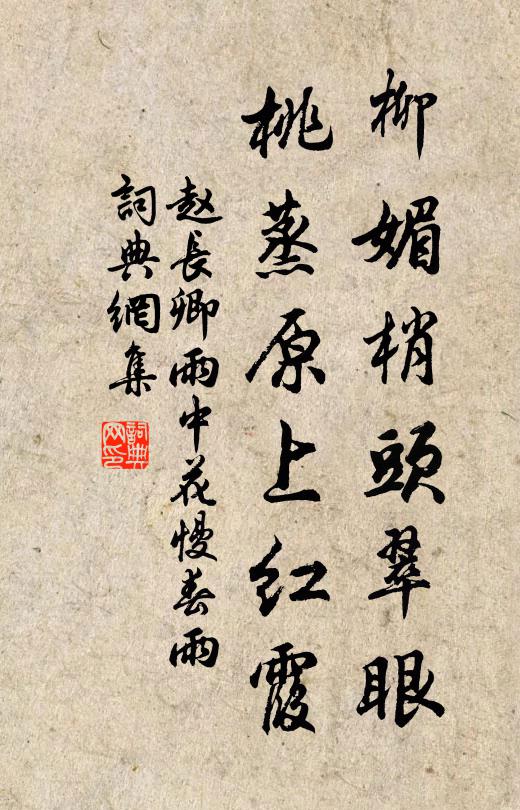 柳媚梢頭翠眼
桃蒸原上红霞
赵長卿雨中花慢春雨
詞典網集
詞典
网印